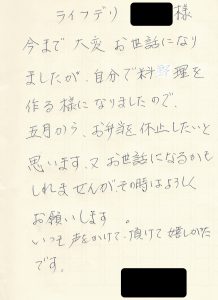 ライフデリ 様
今まで大変お世話になり
ましたが、自分で料理を
作る様になりましたので、
五月から、お弁当を休止したいと
思います。又お世話になるかも
しれませんが、その時はよろしく
お願いします。
いつも声をかけて頂けて嬉しかた
です。